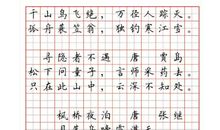 千山鸟飞绝，万径人踪灭。
孤舟蓑笠翁，独钓寒江雪。
寻隐者不遇 唐 贾岛
松下问童子，言师采药去。
只在此山中，云深不知处。
枫桥夜泊 唐 张继